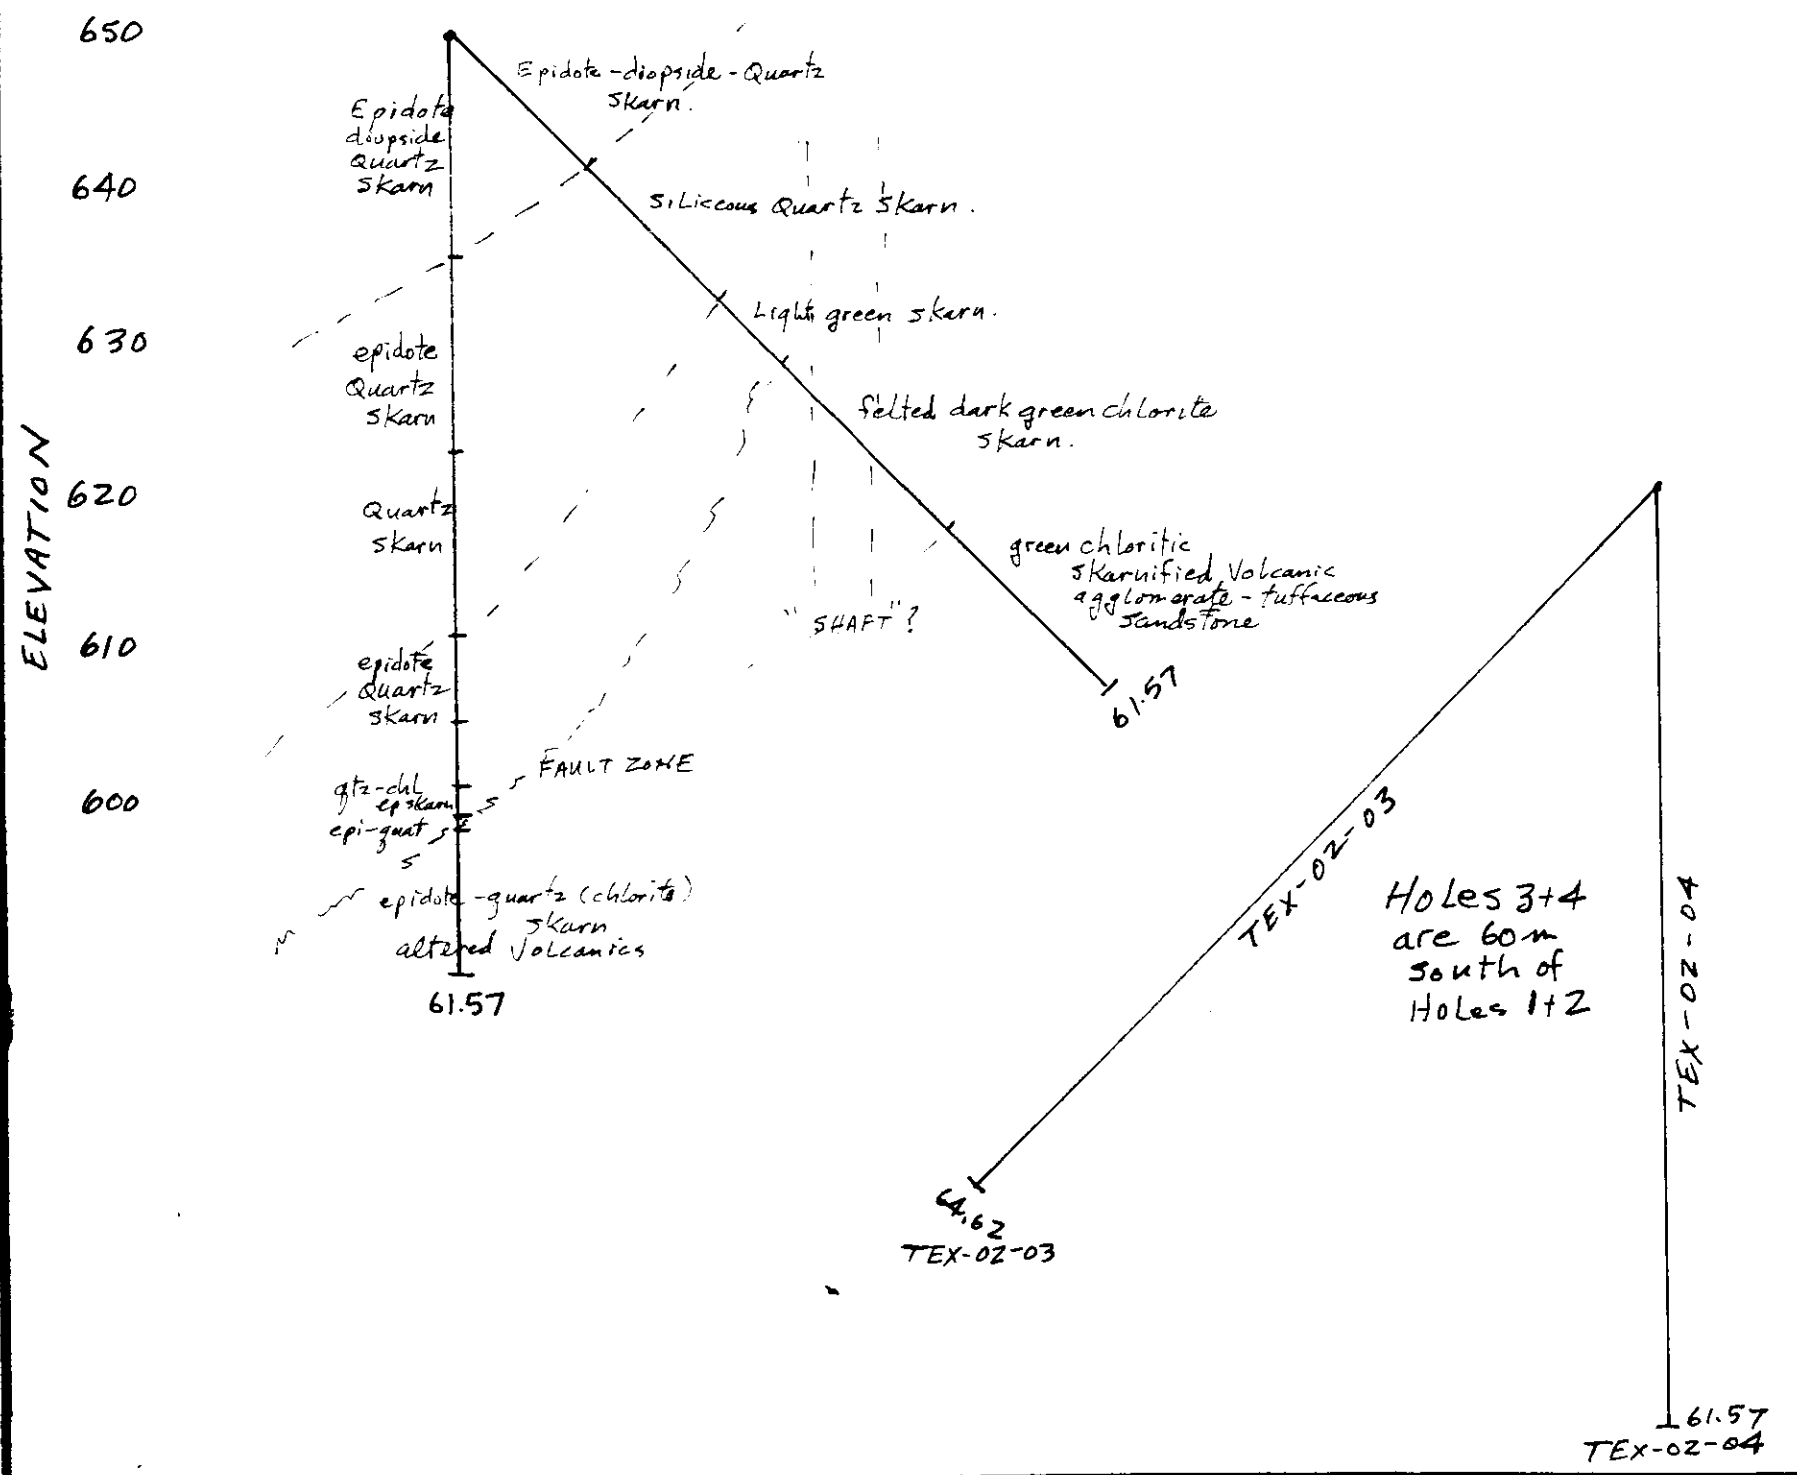 650
640
630
620
610
600
ELEVATION
Epidote
diopside
Quartz
Skarn
epidote
Quartz
Skarn
Quartz
Skarn
epidote
Quartz
skarn
qtz-chl
ep skarn
epi-quat
epidote-quartz (chlorite)
skarn
altered Volcanics
61.57
FAULT ZONE
Epidote-diopside-Quartz
Skarn.
Siliceous Quartz Skarn.
Light green skarn.
felted dark green chlorite
skarn.
green chloritic
skarnified Volcanic
agglomerate-tuffaceous
sandstone
"SHAFT"?
61.57
TEX-02-03
64.62
TEX-02-03
Holes 3+4
are 60m
south of
Holes 1+2
TEX-02-04
61.57
TEX-02-04